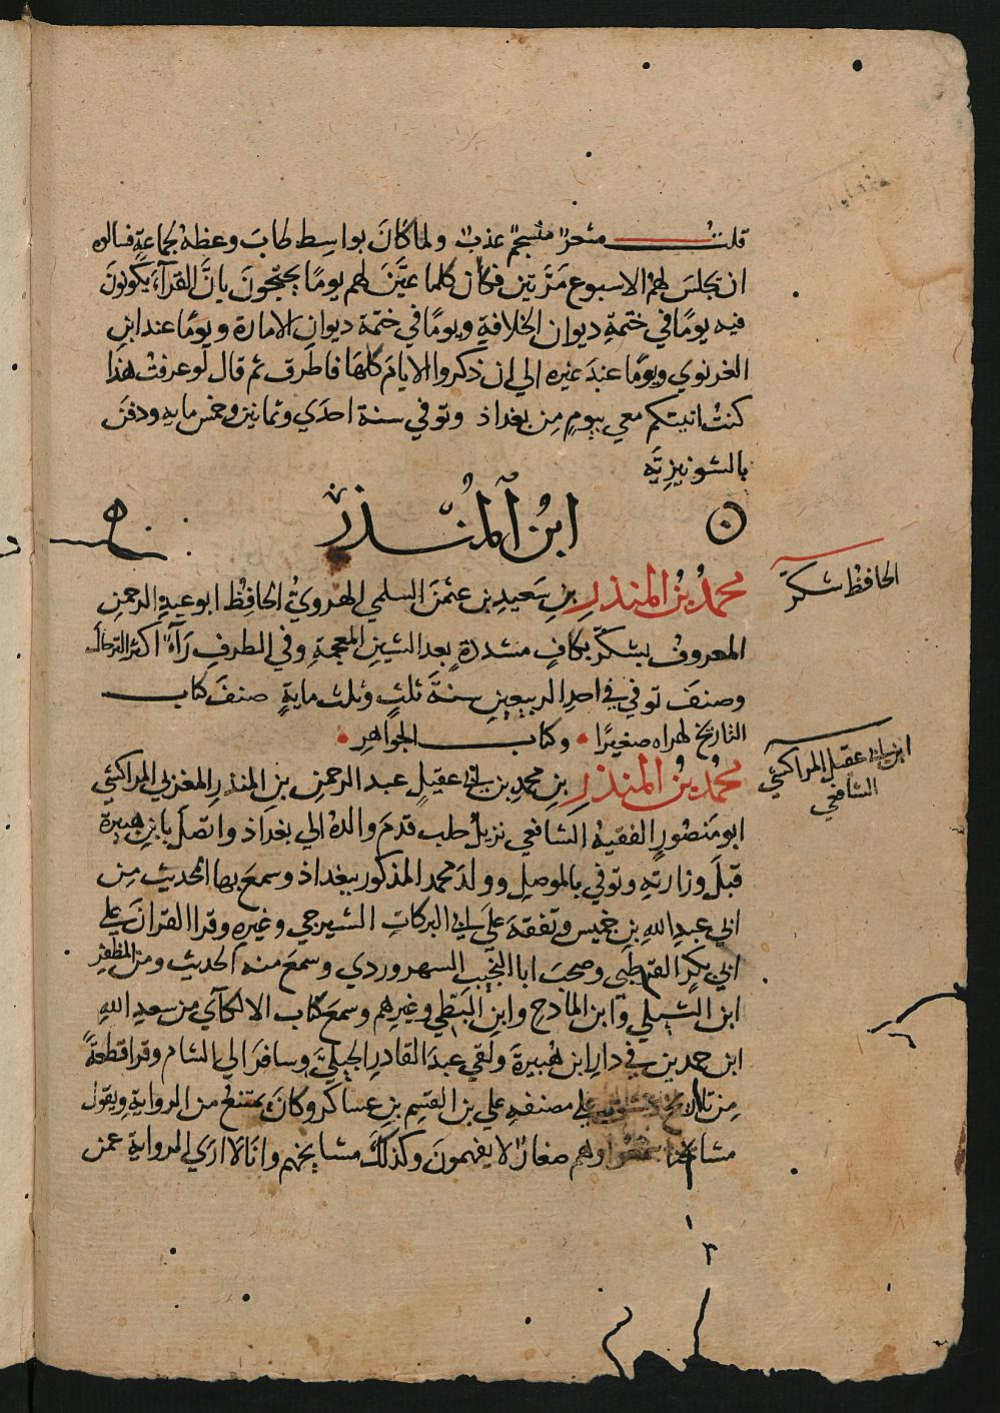 قلتُ شعرٌ منسجمٌ عذبٌ ولما كانَ بواسِط طابَ وعظهُ لجماعةٍ فسالوه
ان يجلسَ لهمْ الاسبوع مَرّتين فكان كلما عيَّنَ لهم يومًا يحتجّونَ بانَّ القرآءَ يكونونَ
فيه يومًا في ختمةِ ديوان الخلافةِ ويومًا في ختمة ديوانِ الامارة ويومًا عند ابنِ
الغزنوي ويومًا عندَ غيره الي ان ذكروا الايامَ كلهَا فاطرق ثم قال لو عرفتُ هذَا
كنتُ اتيتكم معي بيومٍ مِن بغداذ وتوفي سنة احدَي وثمانين وخمس مايه ودفنَ
بالشونيزيَّه
ابنُ المُنْذر
محمدُ بنُ المنذرِ بنِ سَعيدِ بن عثمنَ السلمي الهرويُّ الحافِظُ ابو عبدِ الرحمنِ
المعروفُ بشكّر بكافٍ مشددةٍ بعد الشينِ المعجمةِ وفي الطرفِ رَآءٌ اكثر الترحالَ
وصنفَ توفي في احدِ الربيعينِ سنةَ ثلثٍ وثلث مايةٍ صنفَ كتاب
التاريخ لهراه صغيرًا وكتاب الجواهِر
محمدُ بنُ المنذرِ بنِ محمدِ بن ابي عقيلٍ عبد الرحمنِ بنِ المنذرِ المغربي المراكشي
ابو مَنصُورٍ الفقيهُ الشافعي نزيلُ حلب قدمَ والدهُ الي بغداذ واتصلَ بابنِ هبيرة
قبلَ وزارتهِ وتوفي بالموصلِ وولدَ محمد المذكور ببغداذ وسمعَ بها الحديث مِن
ابي عبدِ اللهِ بنِ خميس وتفقهَ علَي ابي البركاتِ الشيرجي وغيرِه وقرا القرانَ علي
ابي بكرٍ القرطبي وصحبَ ابا النجيب السهروردي وسمعَ منه الحديث ومن المظفرِ
ابن الشبلي وابن المادحِ وابنِ البَطي وغيرِهم وسمعَ كتاب الالكآي من سعدِ اللهِ
ابن حمدين في دارِ ابن هُبيرةَ ولقي عبدَ القادرِ الجيليَّ وسافرَ الي الشام وقرا قطعةً
مِن تاريخ دمشقَ علي مصنفهِ علي بن القسِم بنِ عساكر وكانَ يمتنعُ من الروايةِ ويقولُ
مشايخنا سمعوا وهم صغارٌ لا يفهمونَ وكذلكَ مشايخهم وانَا لَا اري الروايةَ عمن
الحافظ شكّر
ابن ابي عقيل المراكشي
الشافعي